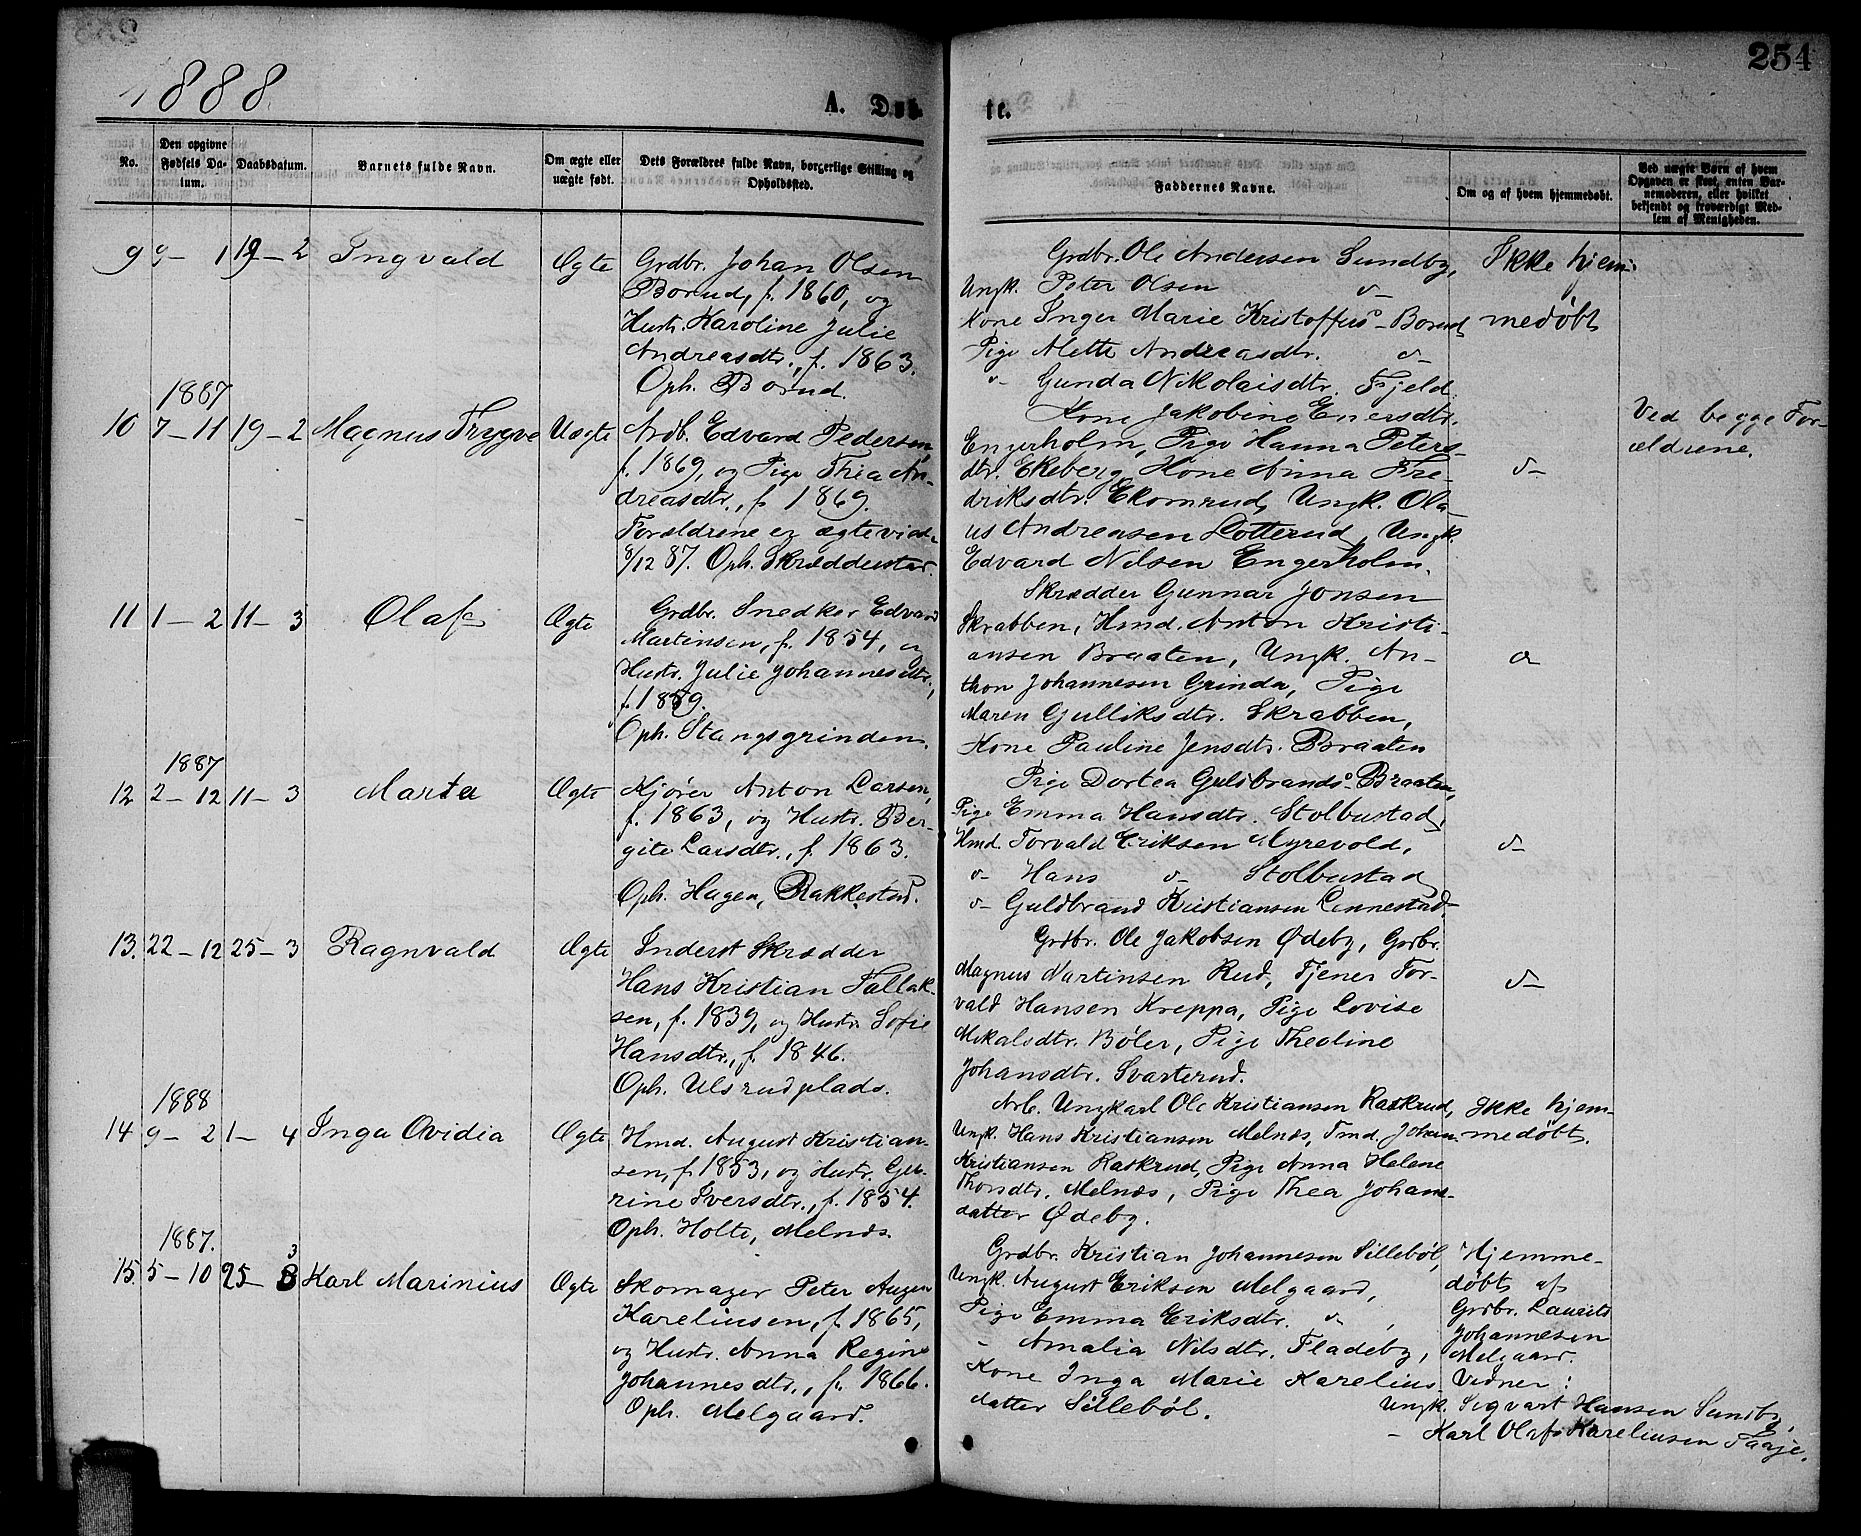 254
1888
A. Døb
te.
No.
Den opgivne Fødsels Datum.
Daabsdatum.
Barnets fulde Navn.
Om ægte eller uægte født.
Dets Forældres fulde Navn, borgerlige Stilling og Opholdssted.
Faddernes Navne.
Om og af hvem hjemmedøbt.
Ved uægte Børn af hvem Opgaven er skeet, enten Barnemoderen, eller hvilket bekjendt og troværdigt Medlem af Menigheden.
9 9 – 1 19 – 2 Ingvald Ægte
Grdbr. Johan Olsen
Borud, f. 1860, og
Hustr. Karoline Julie
Andreasdtr., f. 1863.
Oph. Borud.
Grdbr. Ole Andersen Sundby,
Ungk. Peter Olsen do
Kone Inger Marie Kristoffers Borud
Pige Alette Andreasdtr. do
do Gunda Nikolaisdtr. Fjeld
Ikke hjem-
medøbt
1887
10 7 – 11 19 – 2 Magnus Trygve Uægte
Arb. Edvard Pedersen,
f. 1869, og Pige Thea An-
dreasdtr., f. 1869.
Forældrene er ægteviede
8/12 87. Oph. Skrædderstad.
Kone Jakobine Enersdtr.
Engerholm, Pige Hanna Peters-
dtr. Ekeberg, Kone Anna Fre-
driksdtr. Ekornrud, Ungk. Ola-
us Andreasen Lotterud, Ungk.
Edvard Nilsen Engerholm.
do
Ved begge For-
ældrene.
11 1 – 2 11 – 3 Olaf Ægte
Grdbr. Snedker Edvard
Martinsen, f. 1854, og
Hustr. Julie Johannesdtr.,
f. 1859.
Oph. Stangsgrinden.
Skrædder Gunnar Jonsen
Skrabben, Hmd. Anton Kristi-
ansen Braaten, Ungk. An-
thon Johannesen Grinda, Pige
Maren Gulliksdtr. Skrabben,
Kone Pauline Jensdtr. Braaten
do
1887
12 2 – 12 11 – 3 Marta Ægte
Kjører Anton Larsen,
f. 1863, og Hustr. Ber-
gite Larsdtr., f. 1863.
Oph. Hagen, Rakkestad.
Pige Dortea Guldbrands Braaten,
Pige Emma Hansdtr. Stolbustad,
Hmd. Torvald Eriksen Myrevold,
do Hans do Stolbustad
do Guldbrand Kristiansen Linnestad
do
13. 22 – 12 25 – 3 Ragnvald Ægte
Inderst Skrædder
Hans Kristian Fallak-
sen, f. 1839, og Hustr. Sofie
Hansdtr., f. 1846.
Oph. Ulsrudplads.
Grdbr. Ole Jakobsen Ødeby, Grdbr.
Magnus Martinsen Rud, Tjener Tor-
vald Hansen Kreppa, Pige Lovise
Mikalsdtr. Bøler, Pige Theoline
Johansdtr. Svarterud.
do
1888
14 9 – 2 1 – 4 Inga Ovidia Ægte
Hmd. August Kristian-
sen, f. 1853, og Hustr. Gu-
rine Iversdtr., f. 1854.
Oph. Holte, Melnes.
Arb. Ungkarl Ole Kristiansen Raskrud,
Ungk. Hans Kristiansen Melnæs, Tmd. Johan
Kristiansen Raskrud, Pige Anna Helene
Thorsdtr. Melnæs, Pige Thea Johans-
datter Ødeby.
Ikke hjem-
medøbt.
1887.
15. 5 – 10 25 – 3 Karl Marinius Ægte
Skomager Peter August
Kareliusen, f. 1865,
og Hustr. Anna Regine
Johannesdtr., f. 1866.
Oph. Melgaard.
Grdbr. Kristian Johannesen Sillebøl,
Ungk. August Eriksen Melgaard,
Pige Emma Eriksdtr. do,
– Amalia Nilsdtr. Fladeby,
Kone Inga Marie Karelius-
datter Sillebøl.
Hjemme-
døbt af
Grdbr. Laurits
Johannesen
Melgaard.
Vidner:
Ungk. Sigvart Hansen Sundby,
– Karl Olaf Kareliusen Taaje.